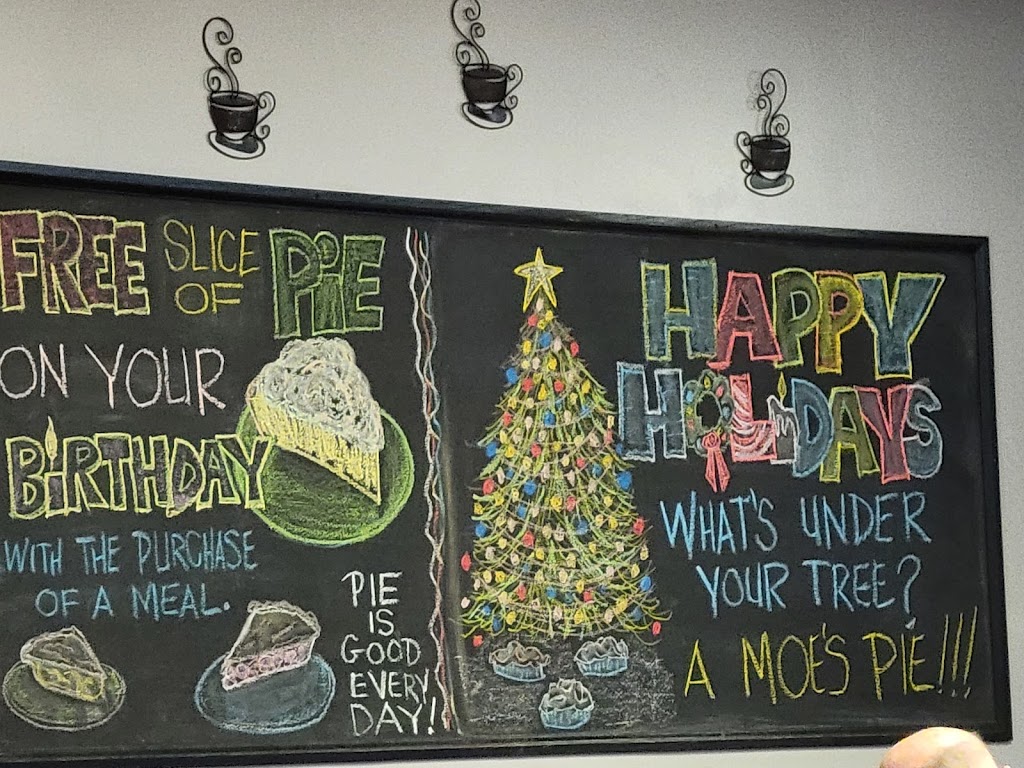 FREE SLICE OF PiE
ON YOUR
BiRTHDAY
WITH THE PURCHASE
OF A MEAL.
PIE
IS
GOOD
EVERY
DAY!
HAPPY
HOLiDAYS
WHAT'S UNDER
YOUR TREE?
A MOE'S PIE!!!